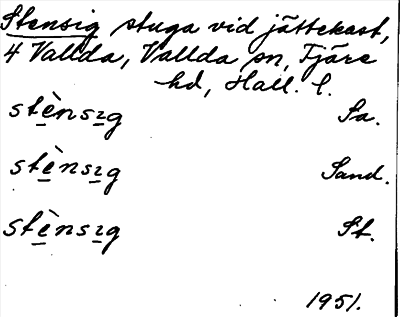 Stensig stuga vid jättekast,
4 Vallda, Vallda sn, Fjäre
hd, Hall. l.
stènsıg Sa.
stènsıg Sand.
stènsıg St.
1951.